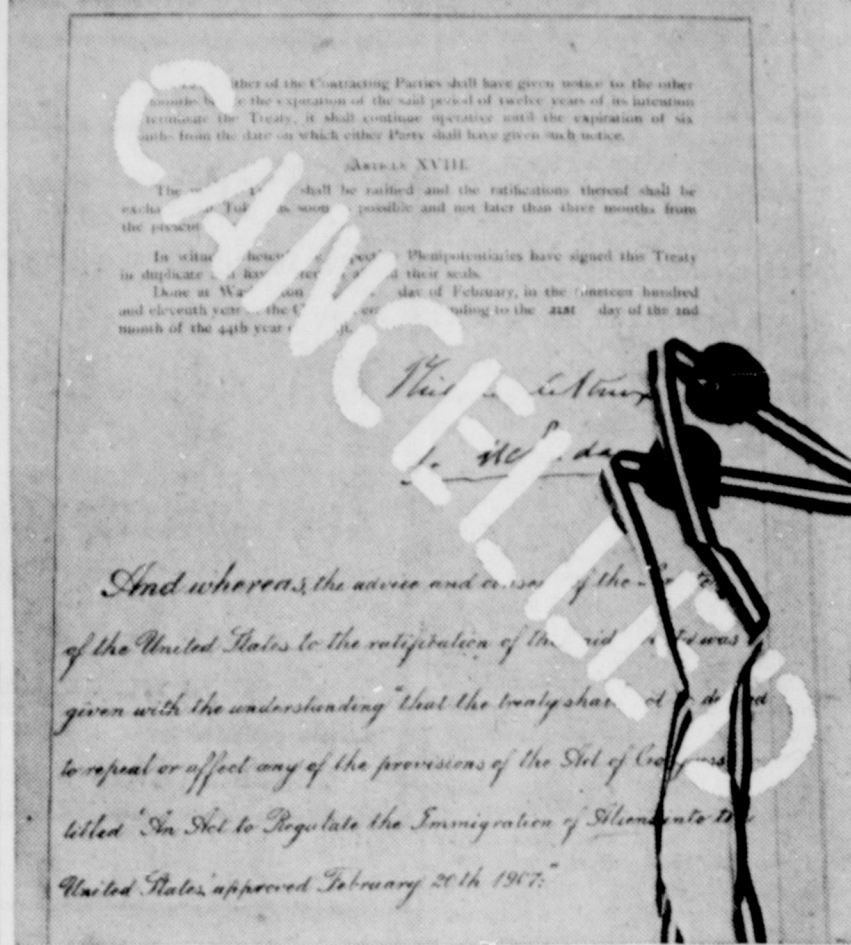 ther of the Contracting Parties shall have given notice to the other
months the expiration of the said period of twelve years of its intention
terminate the Treaty, it shall continue operative until the expiration of six
from the date on which either Party shall have given such notice.
ARTICLE XVIII.
The shall be ratified and the ratifications thereof shall be
excha soon possible and not later than three months from
the present
In witn pecti Plenipotentiaries have signed this Treaty
in duplicate hav their seals.
Done at Wa ton day of February, in the nineteen hundred
and eleventh year the C nding to the 21st day of the 2nd
month of the 44th year
CANCELLED
And whereas, the advice and conse of the
of the United States to the ratification of the said was
given with the understanding "that the treaty shal d
to repeal or affect any of the provisions of the Act of Congress
titled 'An Act to Regulate the Immigration of Aliens into the
United States,' approved February 20th 1907."